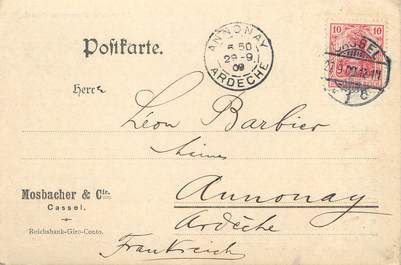 Postkarte.
10 10
CASSEL
27.9.09.
ANNONAY
5 50
29-9
09
ARDÈCHE
Herrn
Léon Barbier
Mosbacher & Cie.
Cassel.
Annonay
Ardèche
Reichsbank-Giro-Conto.
Frankreich